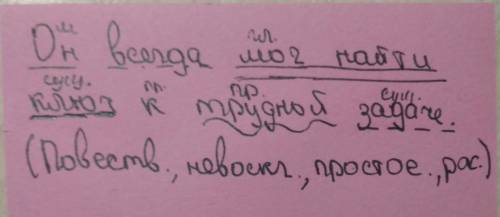 м гл.
Он всегда мог найти
сущ. пр. пр. сущ.
ключ к трудной задаче.
(Повеств., невоскл., простое., рас.)